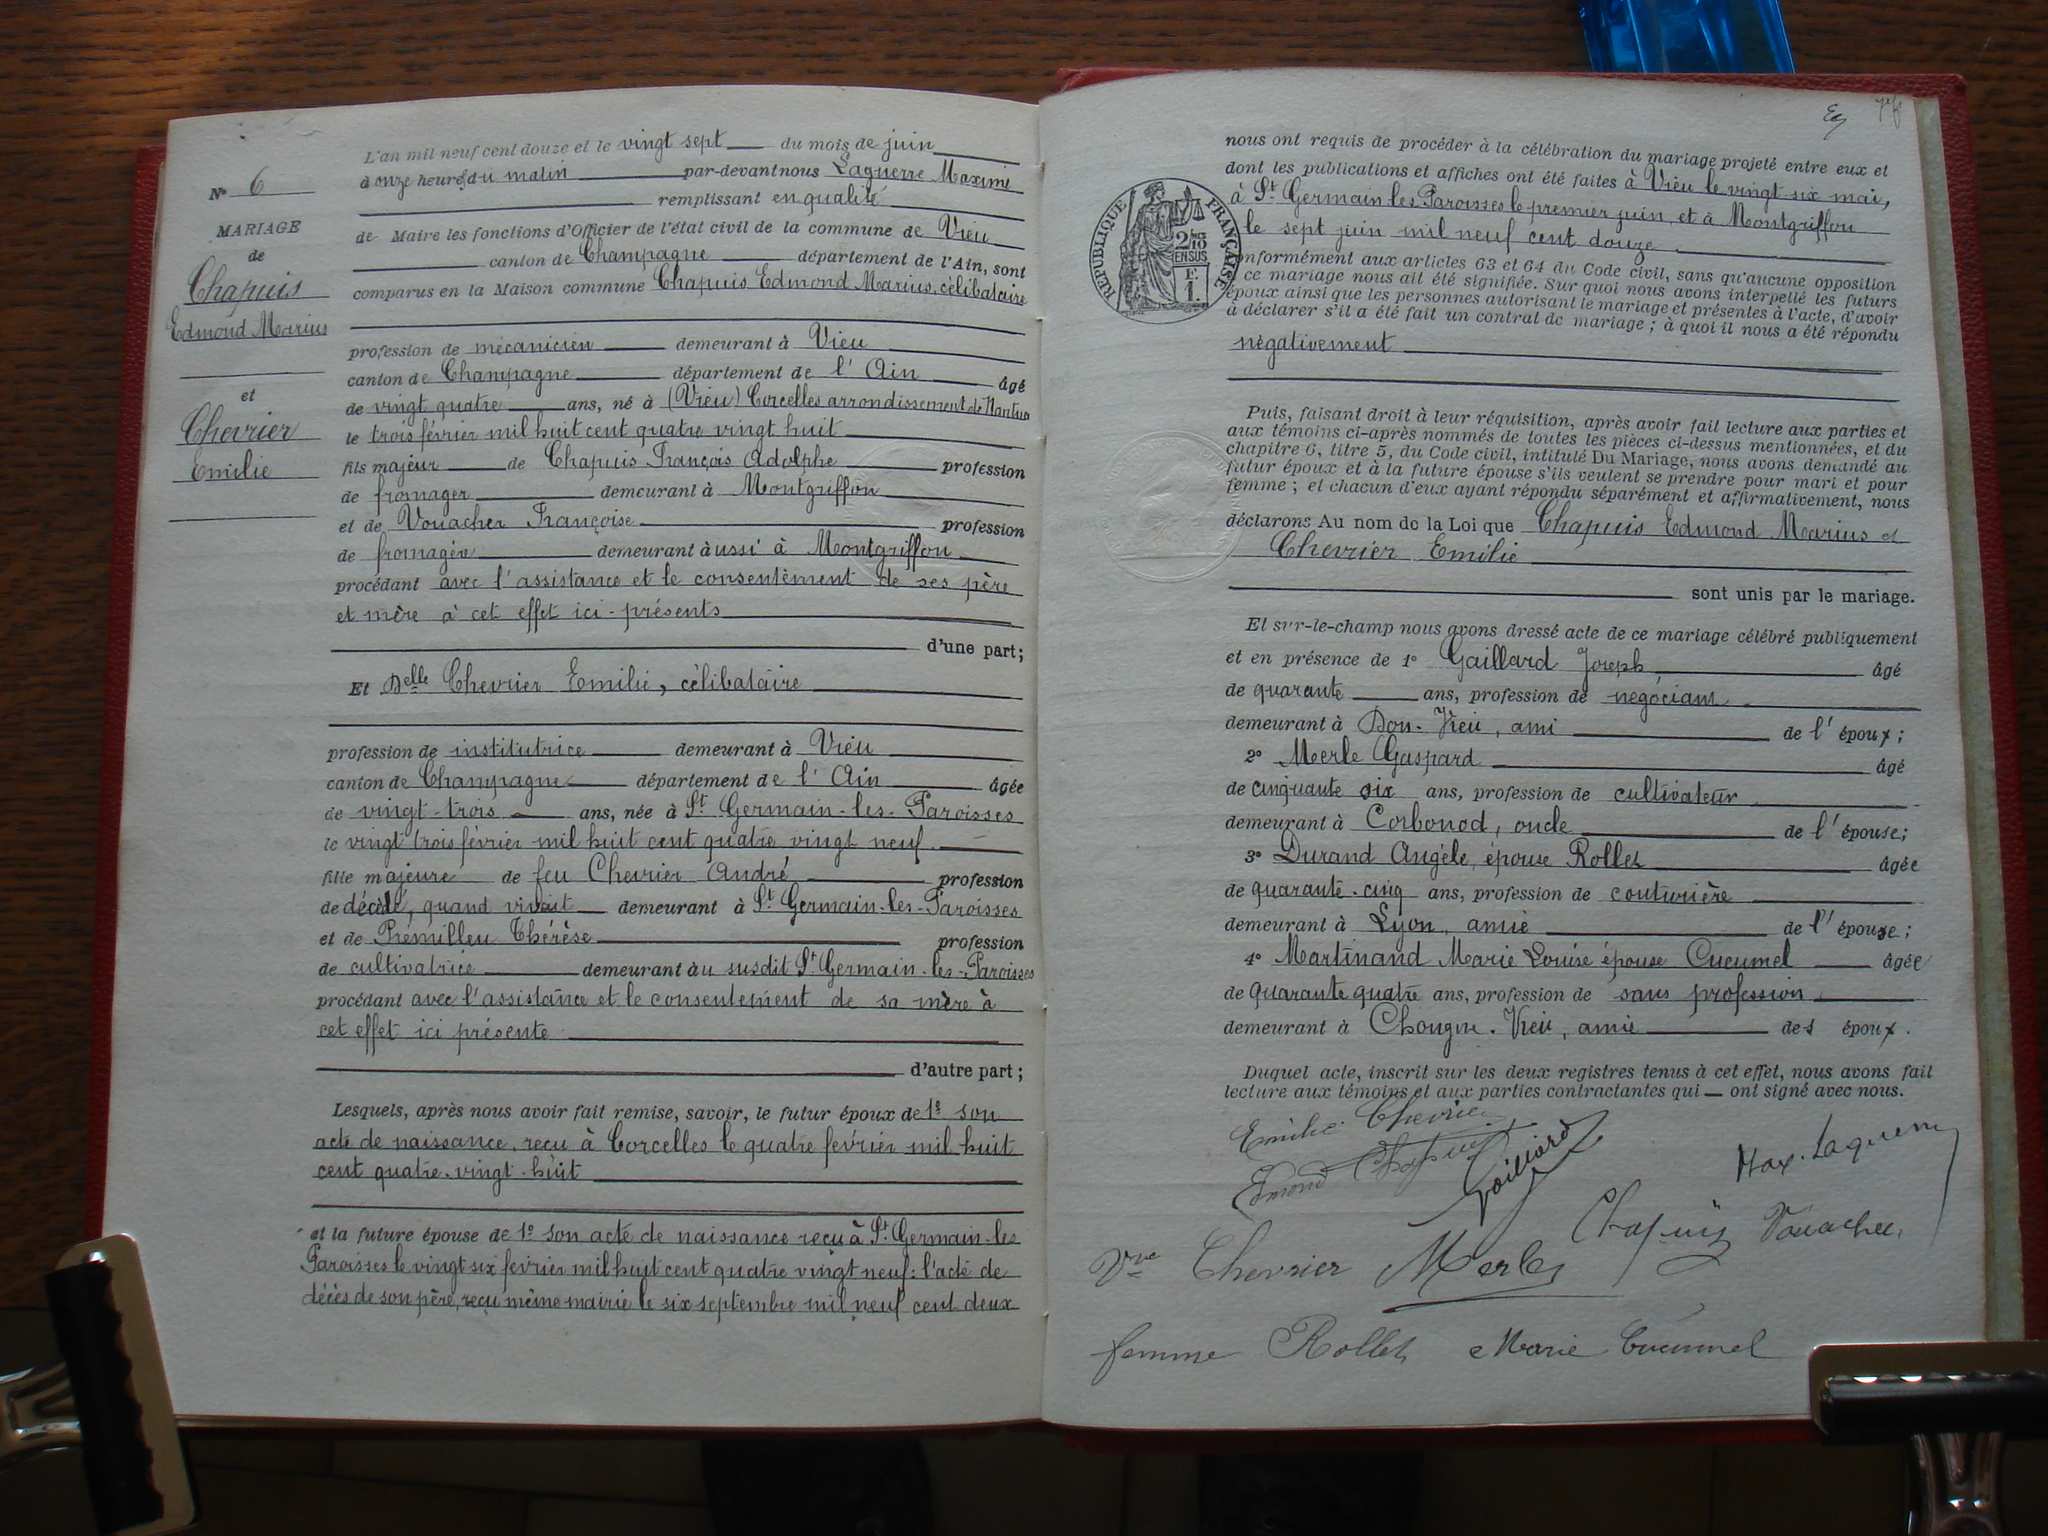 L'an mil neuf cent douze et le vingt sept du mois de juin
à onze heures du matin par-devant nous Laguerre Maxime
remplissant en qualité
de Maire les fonctions d'Officier de l'état civil de la commune de Vieu
canton de Champagne département de l'Ain, sont
comparus en la Maison commune Chapuis Edmond Marius, célibataire
profession de mécanicien demeurant à Vieu
canton de Champagne département de l'Ain âgé
de vingt quatre ans, né à (Vieu) Corcelles arrondissement de Nantua
le trois février mil huit cent quatre vingt huit
fils majeur de Chapuis François Adolphe profession
de fromager demeurant à Montgriffon
et de Vouacher Françoise profession
de fromagère demeurant à aussi à Montgriffon
procédant avec l'assistance et le consentement de ses père
et mère à cet effet ici-présents
d'une part;
Et Delle Chevrier Emilie, célibataire
profession de institutrice demeurant à Vieu
canton de Champagne département de l'Ain âgée
de vingt-trois ans, née à St Germain-les-Paroisses
le vingt trois février mil huit cent quatre vingt neuf
fille majeure de feu Chevrier André profession
de décédé, quand vivait demeurant à St Germain-les-Paroisses
et de Prémilleu Thérèse profession
de cultivatrice demeurant au susdit St Germain-les-Paroisses
procédant avec l'assistance et le consentement de sa mère à
cet effet ici présente
d'autre part;
Lesquels, après nous avoir fait remise, savoir, le futur époux de 1º son
acte de naissance, reçu à Corcelles le quatre février mil huit
cent quatre-vingt-huit
et la future épouse de 1º son acte de naissance reçu à St Germain-les
Paroisses le vingt six février mil huit cent quatre vingt neuf: l'acte de
décès de son père, reçu même mairie le six septembre mil neuf cent deux
Nº 6
MARIAGE
de
Chapuis
Edmond Marius
et
Chevrier
Emilie
nous ont requis de procéder à la célébration du mariage projeté entre eux et
dont les publications et affiches ont été faites à Vieu le vingt-six mai,
à St Germain-les-Paroisses le premier juin, et à Montgriffon
le sept juin mil neuf cent douze
RÉPUBLIQUE FRANÇAISE
2/10
EN SUS
1 F.
conformément aux articles 63 et 64 du Code civil, sans qu'aucune opposition
ce mariage nous ait été signifiée. Sur quoi nous avons interpellé les futurs
époux ainsi que les personnes autorisant le mariage et présentes à l'acte, d'avoir
à déclarer s'il a été fait un contrat de mariage; à quoi il nous a été répondu
négativement
Puis, faisant droit à leur réquisition, après avoir fait lecture aux parties et
aux témoins ci-après nommés de toutes les pièces ci-dessus mentionnées, et du
chapitre 6, titre 5, du Code civil, intitulé Du Mariage, nous avons demandé au
futur époux et à la future épouse s'ils veulent se prendre pour mari et pour
femme; et chacun d'eux ayant répondu séparément et affirmativement, nous
déclarons Au nom de la Loi que Chapuis Edmond Marius et
Chevrier Emilie
sont unis par le mariage.
Et sur-le-champ nous avons dressé acte de ce mariage célébré publiquement
et en présence de 1º Gaillard Joseph, âgé
de quarante ans, profession de négociant
demeurant à Don-Vieu, ami de l'époux;
2º Merle Gaspard âgé
de cinquante six ans, profession de cultivateur
demeurant à Corbonod, oncle de l'épouse;
3º Durand Angèle, épouse Rollet âgée
de quarante-cinq ans, profession de couturière
demeurant à Lyon, amie de l'épouse;
4º Martinand Marie Louise épouse Cueumel âgée
de quarante quatre ans, profession de sans profession
demeurant à Chongne-Vieu, amie des époux.
Duquel acte, inscrit sur les deux registres tenus à cet effet, nous avons fait
lecture aux témoins et aux parties contractantes qui ont signé avec nous.
Emilie Chevrier
Edmond Chapuis
Gaillard
Max. Laguerre
Chapuis Vouacher
Vve Chevrier Merle
femme Rollet Marie Cueumel